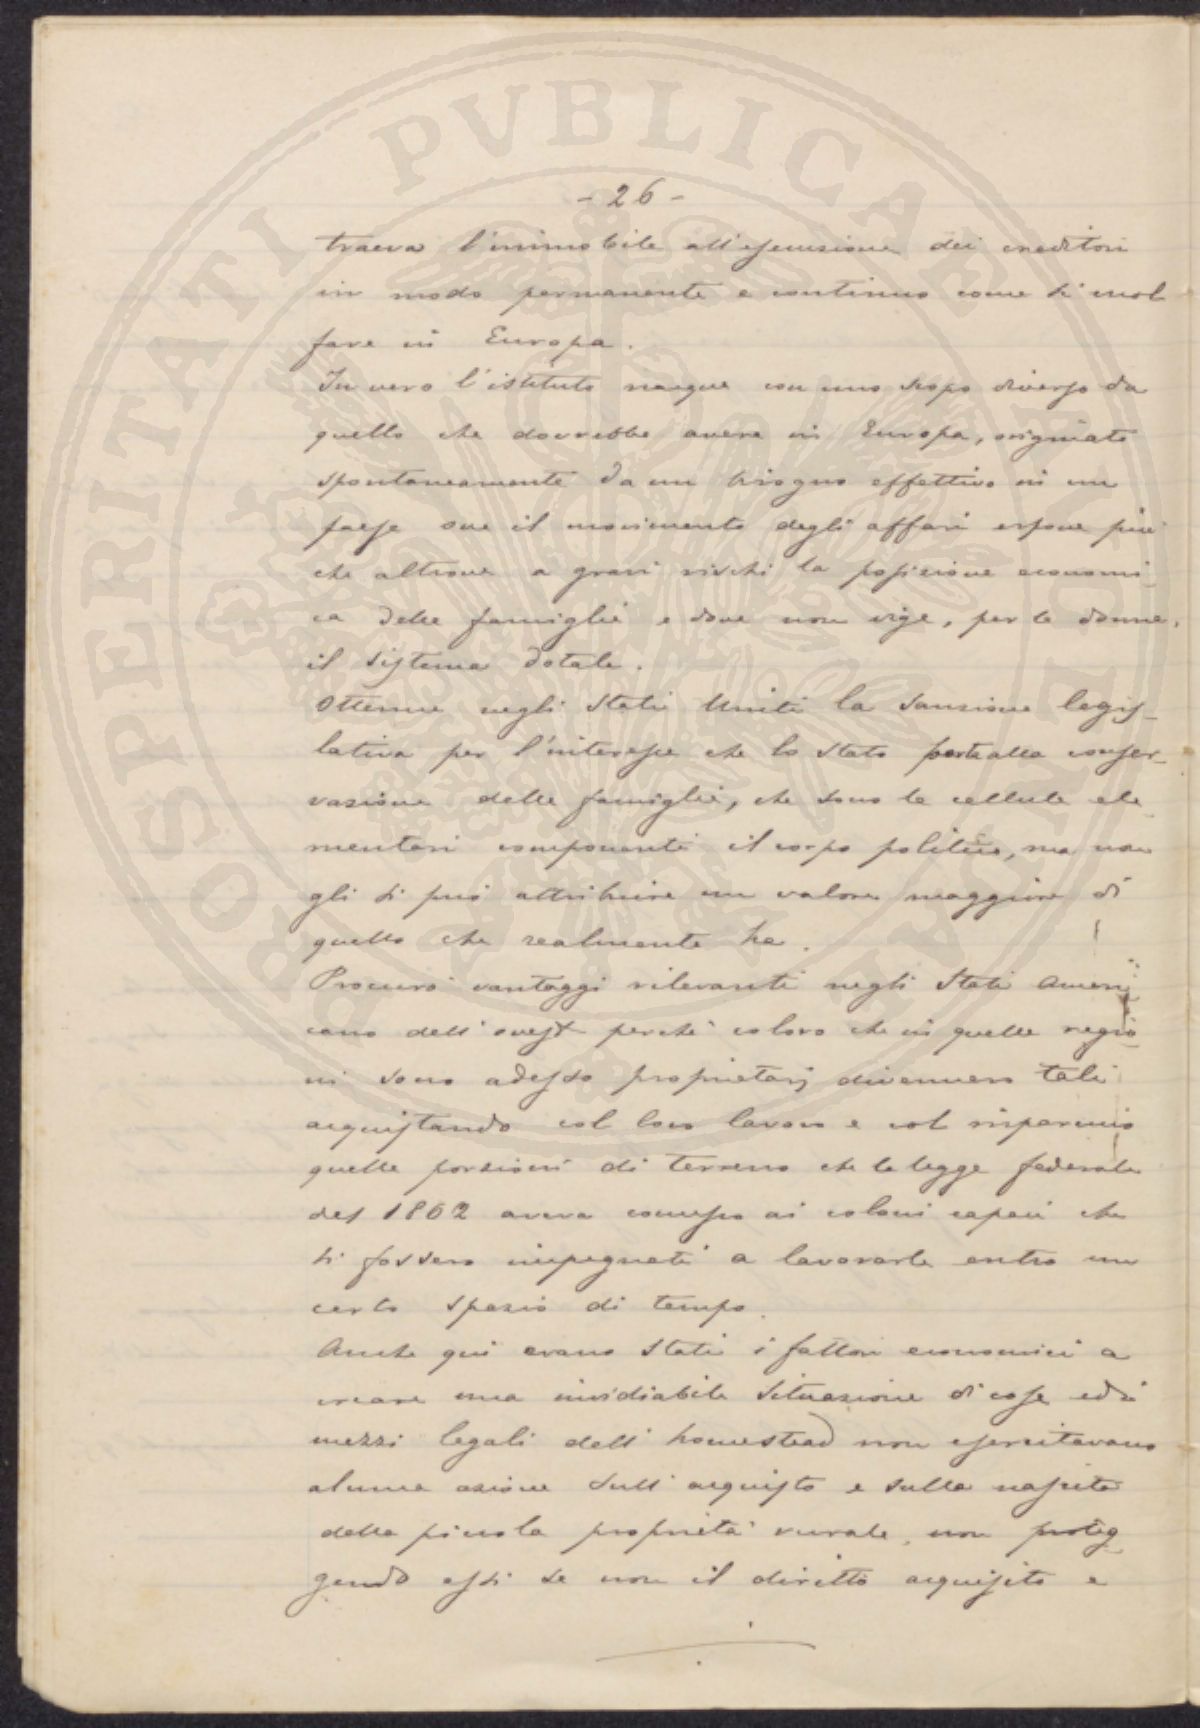 - 26 -
traeva l'immobile all'esecuzione dei creditori
in modo permanente e continuo come si vuol
fare in Europa.
In vero l'istituto nacque con uno scopo diverso da
quello che dovrebbe avere in Europa, originato
spontaneamente da un bisogno effettivo in un
paese ove il movimento degli affari espone più
che altrove a gravi rischi la posizione economi-
ca delle famiglie e dove non vige, per le donne,
il sistema dotale.
Ottenne negli Stati Uniti la sanzione legis-
lativa per l'interesse che lo Stato porta alla conser-
vazione delle famiglie, che sono le cellule ele
mentari componenti il corpo politico, ma non
gli si può attribuire un valore maggiore di
quello che realmente ha.
Procurò vantaggi rilevanti negli Stati Ameri
cano dell'ovest perchè coloro che in quelle regio
ni sono adesso proprietarj divennero tali
acquistando col loro lavoro e col risparmio
quelle porzioni di terreno che la legge federale
del 1862 aveva concesso ai coloni capaci che
si fossero impegnati a lavorarle entro un
certo spazio di tempo.
Anche qui erano stati i fattori economici a
creare una invidiabile situazione di cose ed i
mezzi legali dell'homestead non esercitavano
alcuna azione sull'acquisto e sulla nascita
della piccola proprietà rurale, non proteg
gendo essi se non il diritto acquisito e
PROSPERITATI PVBLICAE